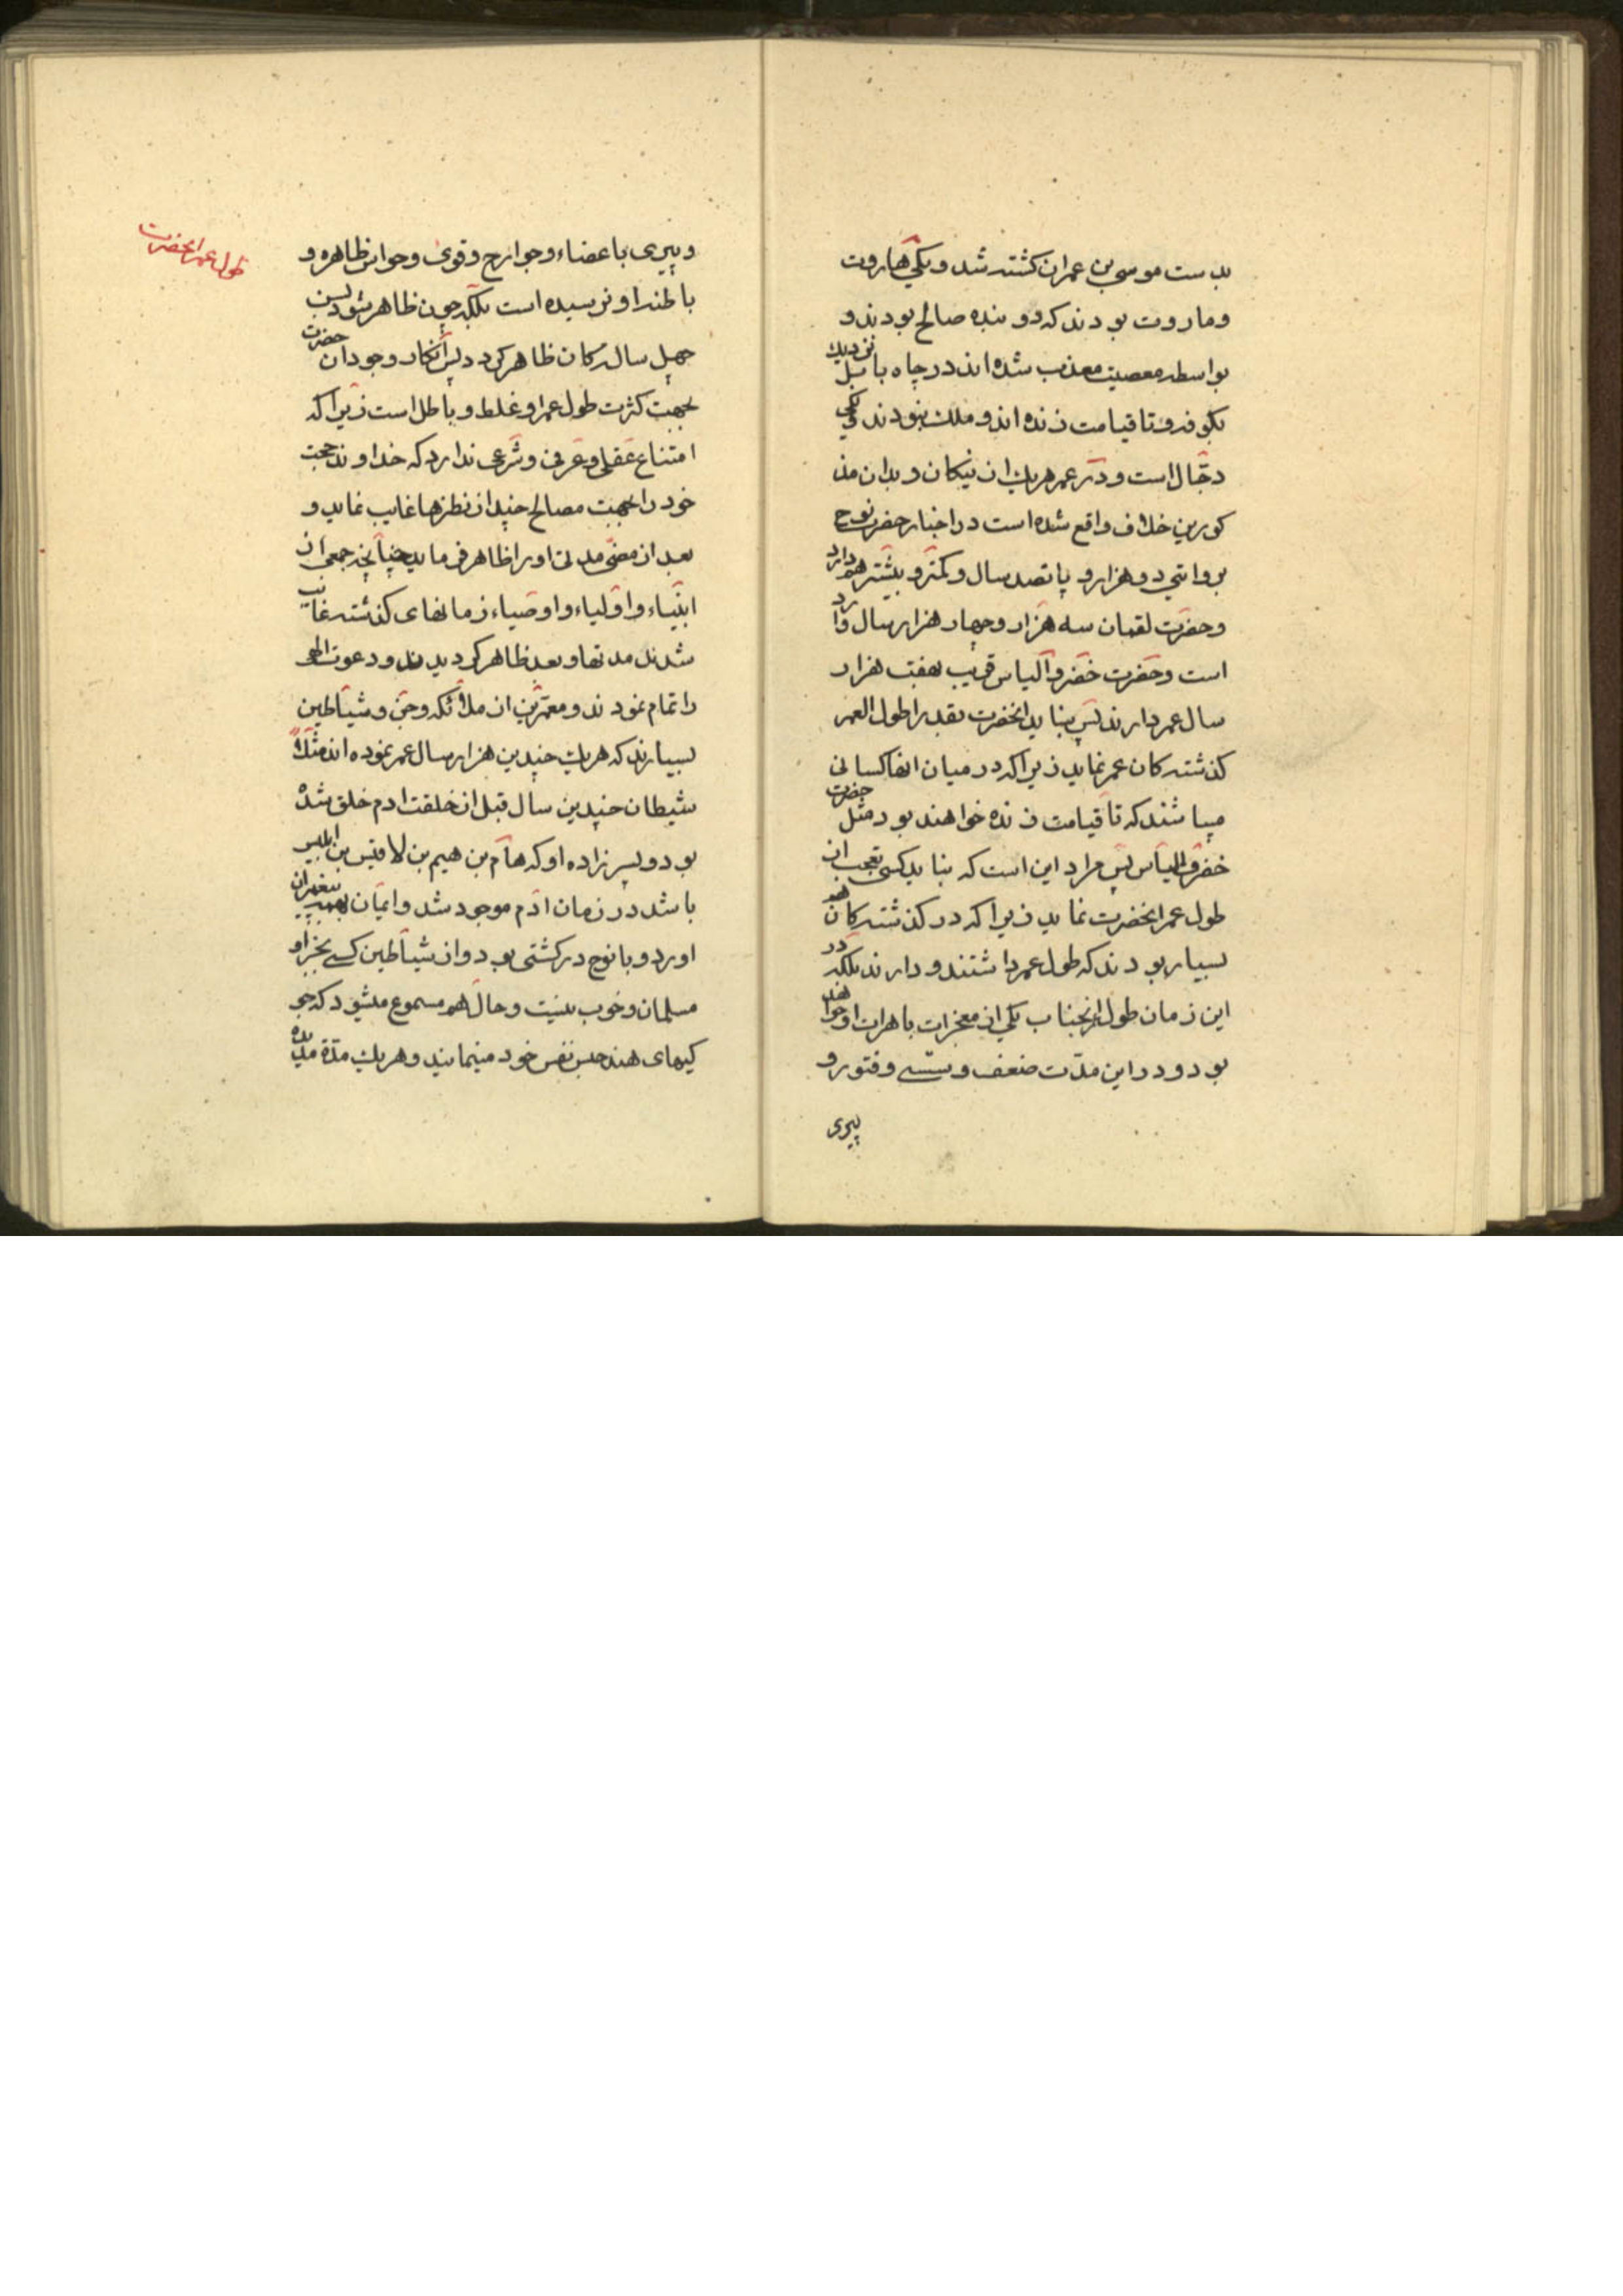 بدست موسی بن عمران کشته شد و یکی هاروت
و ماروت بودند که دو بنده صالح بودند و
بواسطه معصیت معذب شده اند در چاه بابل نزدیك
بکوفه و تا قیامت زنده اند و ملك نبودند و یکی
دجّال است و در عمر هریك از نیکان و بدان مذ
کورین خلاف واقع شده است در اخبار حضرت نوح
بروایتی دو هزار و پانصد سال و کمتر و بیشتر هم دارد
و حضرت لقمان سه هزار و چهار هزار سال وارد
است و حضرت خضر و الیاس قریب بهفت هزار
سال عمر دارند پس بناید انحضرت بقدر اطول العمر
کذشته کان عمر نماید زیرا که در میان انها کسانی
میباشند که تا قیامت زنده خواهند بود مثل حضرت
خضر و الیاس پس مراد این است که بناید کسی تعجب از
طول عمر انحضرت نماید زیرا که در کذشته کان هم
بسیار بودند که طول عمر داشتند و دارند بلکه در
این زمان طول انجناب یکی از معجزات باهرات او خواهد
بود و در این مدّت ضعف و سستی و فتور و
پیری
و پیری باعضاء و جوارح و قوی و حواس ظاهره و
باطنه او نرسیده است بلکه چون ظاهر شود بسن
چهل ساله کان ظاهر کردد پس انکار وجود ان حضرت
بجهت کثرت طول عمر او غلط و باطل است زیرا که
امتناع عقلی و عرفی و شرعی ندارد که خداوند حجت
خود را بجهت مصالح چند از نظرها غایب نماید و
بعد از مضّی مدتی او را ظاهر فرماید چنانچه جمعی از
انبیاء و اولیاء و اوصیاء زمانهای کذشته غایب
شدند مدتها و بعد ظاهر کردیدند و دعوت الهی
را تمام نمودند و معمّرین از ملائکه و جن و شیاطین
بسیارند که هریك چندین هزار سال عمر نموده اند مثلاً
شیطان چندین سال قبل از خلقت ادم خلق شده
بود و پسر زاده او که هام بن هیم بن لاقیس بن ابلیس
باشد در زمان ادم موجود شد و ایمان بهمه پیغمبران
اورد و با نوح در کشتی بود و از شیاطین کسی بجز او
مسلمان و خوب نیست و حال هم مسموع میشود که جو
کیهای هند حبس نفس خود مینمایند و هریك مدّة مدیده
طول عمر انحضرت